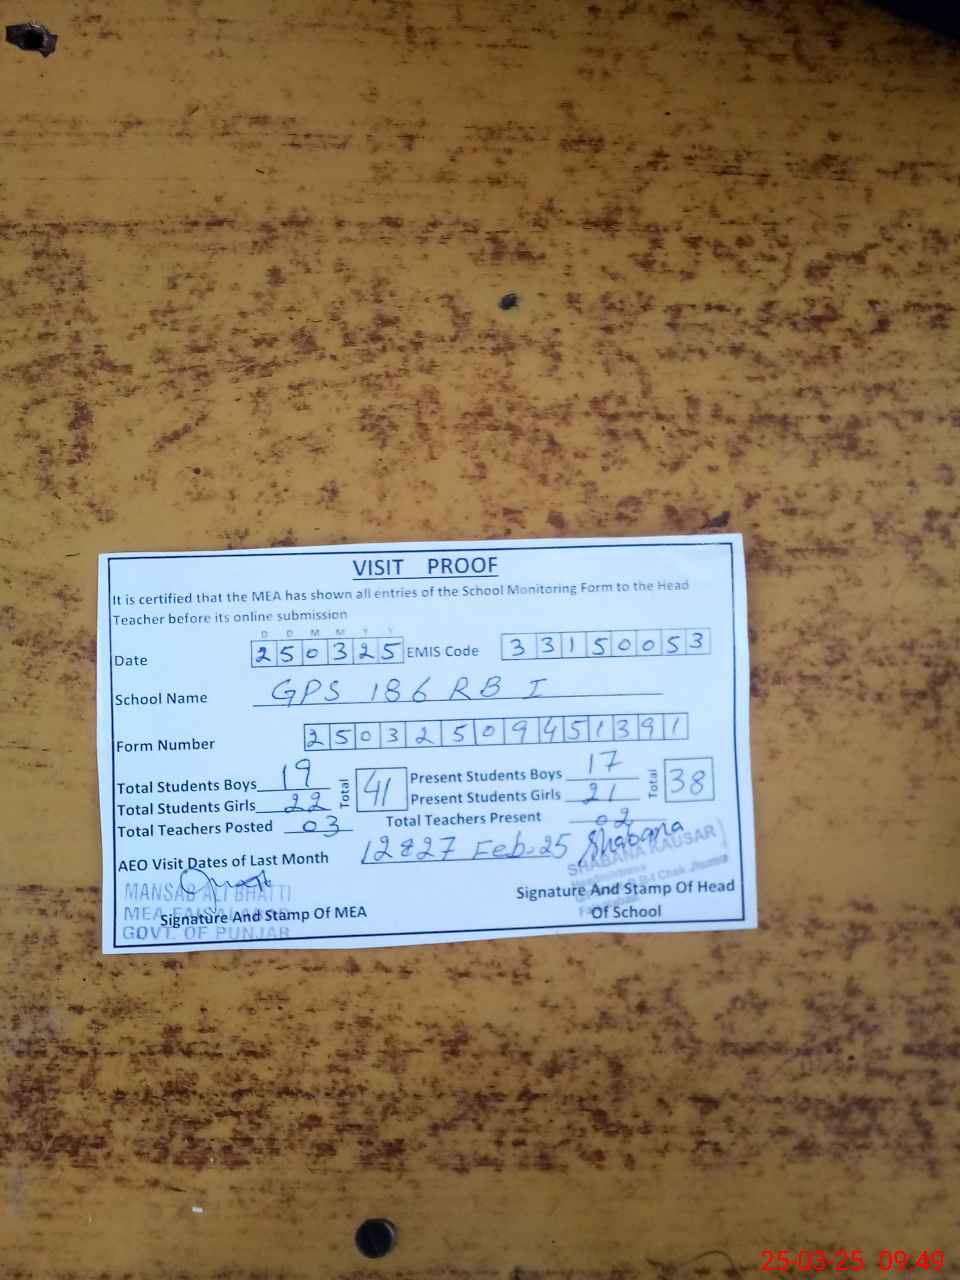 VISIT PROOF
It is certified that the MEA has shown all entries of the School Monitoring Form to the Head
Teacher before its online submission
D D M M Y Y
Date 250325 EMIS Code 33150053
School Name GPS 186 RB I
Form Number 25032509451391
Total Students Boys 19 Total 41 Present Students Boys 17 Total 38
Total Students Girls 22 Present Students Girls 21
Total Teachers Posted 03 Total Teachers Present 02
AEO Visit Dates of Last Month 12&27 Feb.25 Shabana
SHABANA KAUSAR
MANSAB ALI BHATTI
MEA
GOVT. OF PUNJAB
Signature And Stamp Of MEA
Signature And Stamp Of Head
Of School
25-03-25 09:49